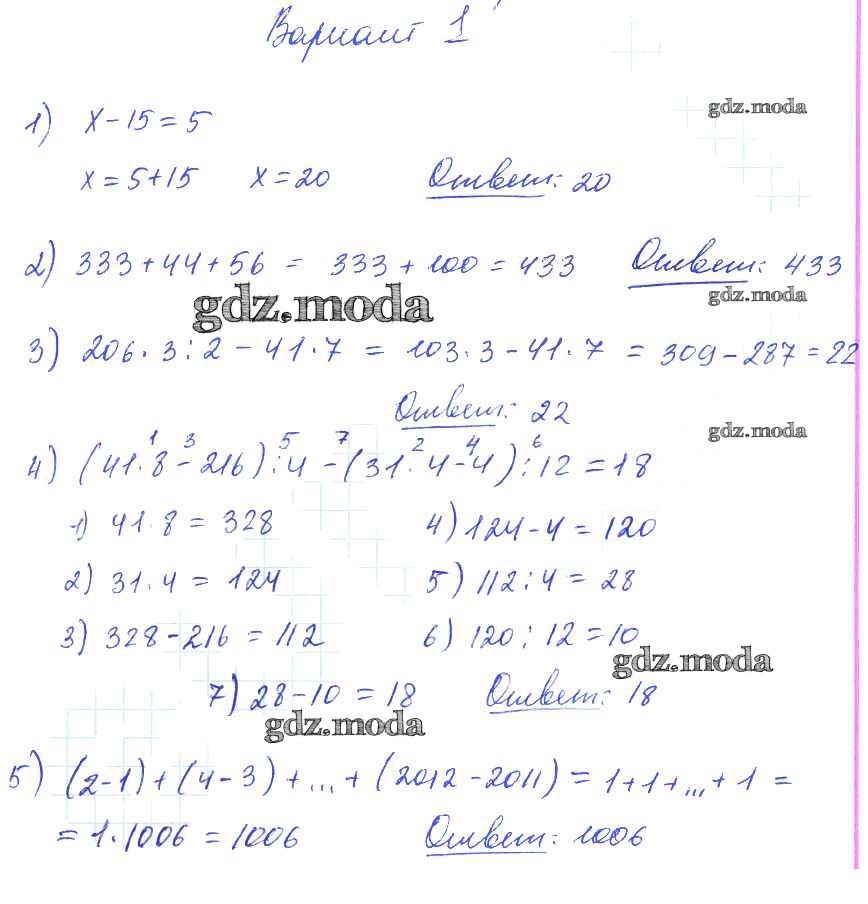 Вариант 1
1) x - 15 = 5
gdz.moda
x = 5+15 x = 20 Ответ: 20
2) 333 + 44 + 56 = 333 + 100 = 433 Ответ: 433
gdz.moda gdz.moda
3) 206 · 3 : 2 - 41 · 7 = 103 · 3 - 41 · 7 = 309 - 287 = 22
Ответ: 22
gdz.moda
1 3 5 7 2 4 6
4) (41 · 8 - 216) : 4 - (31 · 4 - 4) : 12 = 18
1) 41 · 8 = 328 4) 124 - 4 = 120
2) 31 · 4 = 124 5) 112 : 4 = 28
3) 328 - 216 = 112 6) 120 : 12 = 10
gdz.moda
7) 28 - 10 = 18 Ответ: 18
gdz.moda
5) (2-1) + (4-3) + ... + (2012 - 2011) = 1+1+ ... +1 =
= 1 · 1006 = 1006 Ответ: 1006